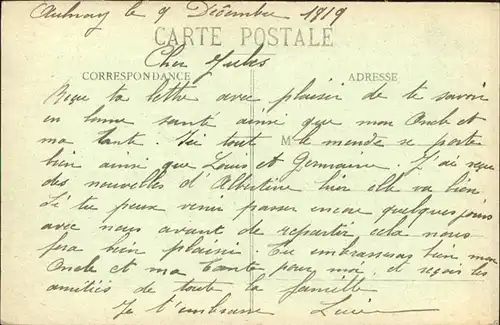 Aulnay le 9 Décembre 1919
CARTE POSTALE
Cher Jules
CORRESPONDANCE
ADRESSE
Reçue ta lettre avec plaisir de te savoir
en bonne santé ainsi que mon Oncle et
ma tante. Ici tout le monde se porte
M
bien ainsi que Louis et Germaine. J'ai reçu
des nouvelles d'Albertine hier elle va bien
Si tu peux venir passer encore quelques jours
avec nous avant de repartir cela nous
fera bien plaisir. Tu embrasseras bien mon
Oncle et ma tante pour moi, et reçois les
amitiés de toute la famille
Je t'embrasse